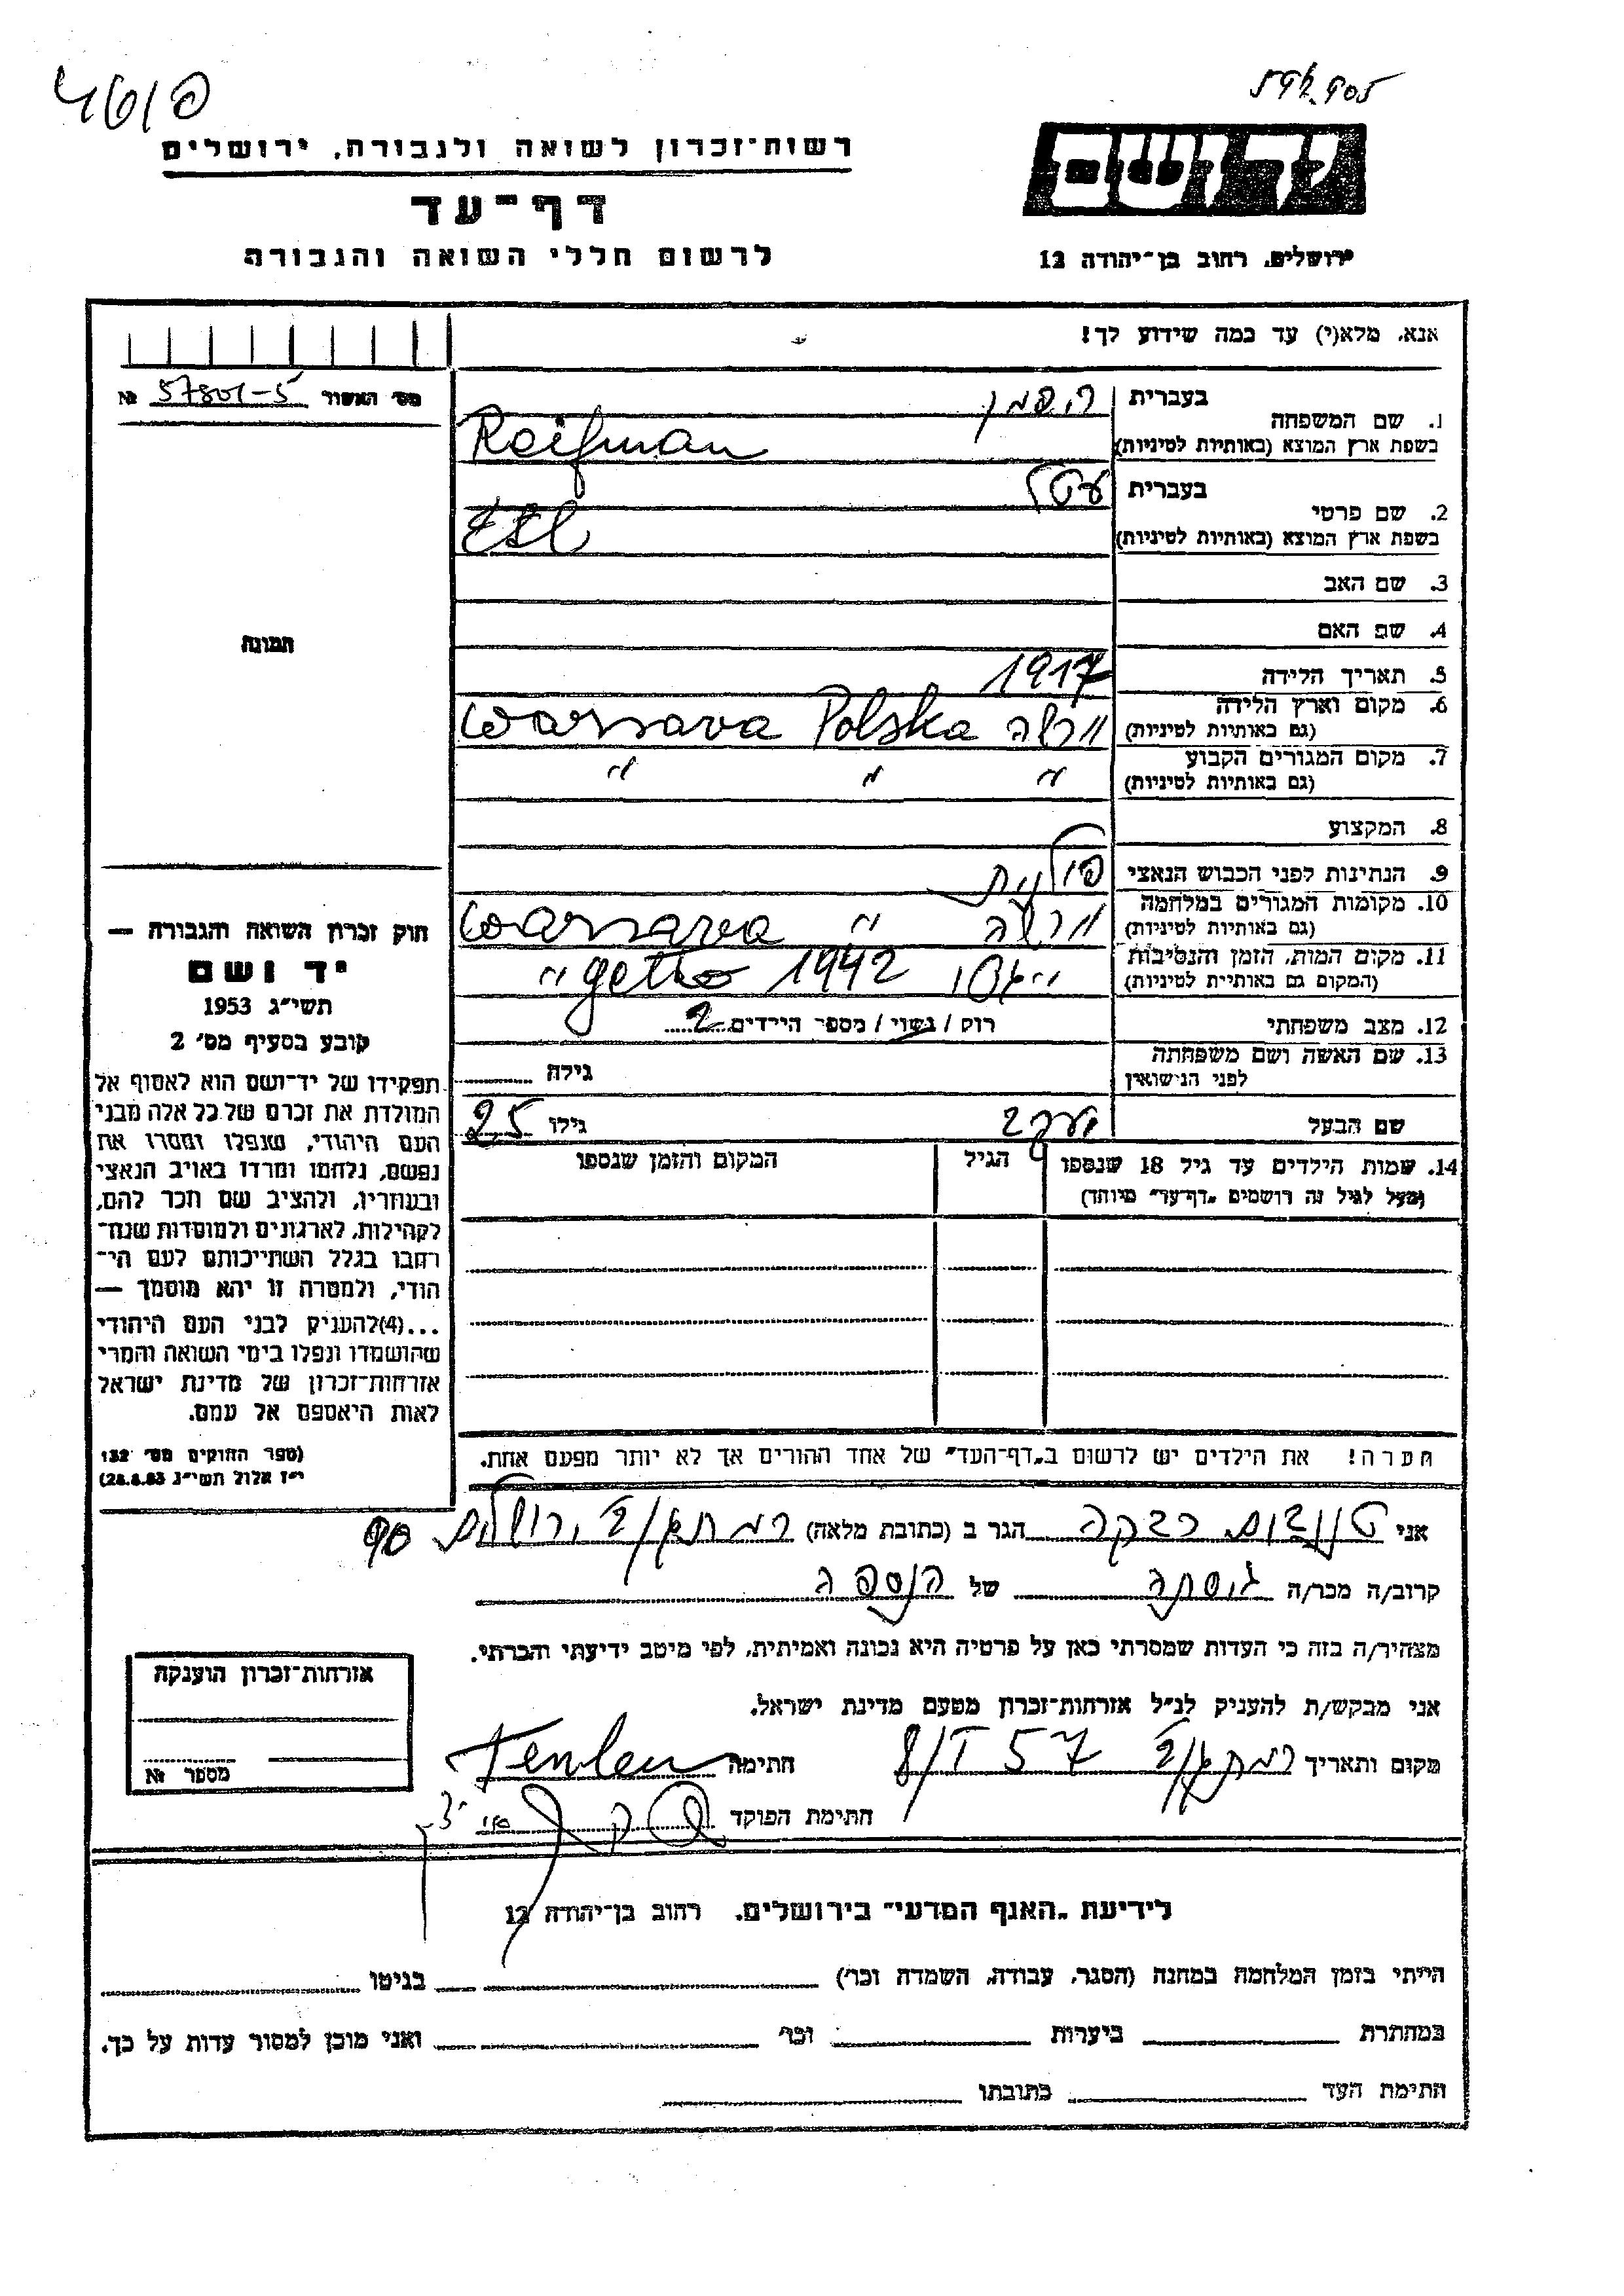 רשות־זכרון לשואה ולגבורה, ירושלים
דף־עד
לרשום חללי השואה והגבורה
יד ושם
ירושלים, רחוב בן־יהודה 12
אנא, מלא(י) עד כמה שידוע לך!
מס' האשור 57801-5 №
1. שם המשפחה בעברית ריפמן
בשפת ארץ המוצא (באותיות לטיניות) Reifman
2. שם פרטי בעברית עטל
בשפת ארץ המוצא (באותיות לטיניות) Etl
3. שם האב
4. שם האם
תמונה
5. תאריך הלידה 1917
6. מקום וארץ הלידה ורשה Warsava Polska
(גם באותיות לטיניות)
7. מקום המגורים הקבוע " " "
(גם באותיות לטיניות)
8. המקצוע
9. הנתינות לפני הכבוש הנאצי פולנית
10. מקומות המגורים במלחמה ורשה " Warsava
(גם באותיות לטיניות)
11. מקום המות, הזמן והנסיבות 1942 getto "
(המקום גם באותיות לטיניות)
12. מצב משפחתי רוק / נשוי / מספר הילדים 2
13. שם האשה ושם משפחתה גילה
לפני הנישואין
שם הבעל יעקב גילו 25
14. שמות הילדים עד גיל 18 שנספו הגיל המקום והזמן שנספו
(מעל לגיל זה רושמים „דף־עד" מיוחד)
חוק זכרון השואה והגבורה —
יד ושם
תשי"ג 1953
קובע בסעיף מס' 2
תפקידו של יד־ושם הוא לאסוף אל
המולדת את זכרם של כל אלה מבני
העם היהודי, שנפלו ומסרו את
נפשם, נלחמו ומרדו באויב הנאצי
ובעוזריו, ולהציב שם וזכר להם,
לקהילות, לארגונים ולמוסדות שנח־
רבו בגלל השתייכותם לעם הי־
הודי, ולמטרה זו יהא מוסמך —
...(4)להעניק לבני העם היהודי
שהושמדו ונפלו בימי השואה והמרי
אזרחות־זכרון של מדינת ישראל
לאות היאספם אל עמם.
(ספר החוקים מס' 132
י"ז אלול תשי"ג 28.8.53)
הערה! את הילדים יש לרשום ב„דף־העד" של אחד ההורים אך לא יותר מפעם אחת.
אני רבקה הגר ב (כתובת מלאה) ירושלים 90
קרוב/ה מכר/ה גיסתה של הנספה
מצהיר/ה בזה כי העדות שמסרתי כאן על פרטיה היא נכונה ואמיתית, לפי מיטב ידיעתי והכרתי.
אני מבקש/ת להעניק לנ"ל אזרחות־זכרון מטעם מדינת ישראל.
מקום ותאריך 8/I 57 חתימה
חתימת הפוקד
אזרחות־זכרון הוענקה
מספר №
לידיעת „האגף המדעי" בירושלים, רחוב בן־יהודה 12
הייתי בזמן המלחמה במחנה (הסגר, עבודה, השמדה וכו') בגיטו
במחתרת ביערות וכו' ואני מוכן למסור עדות על כך.
חתימת העד כתובתו